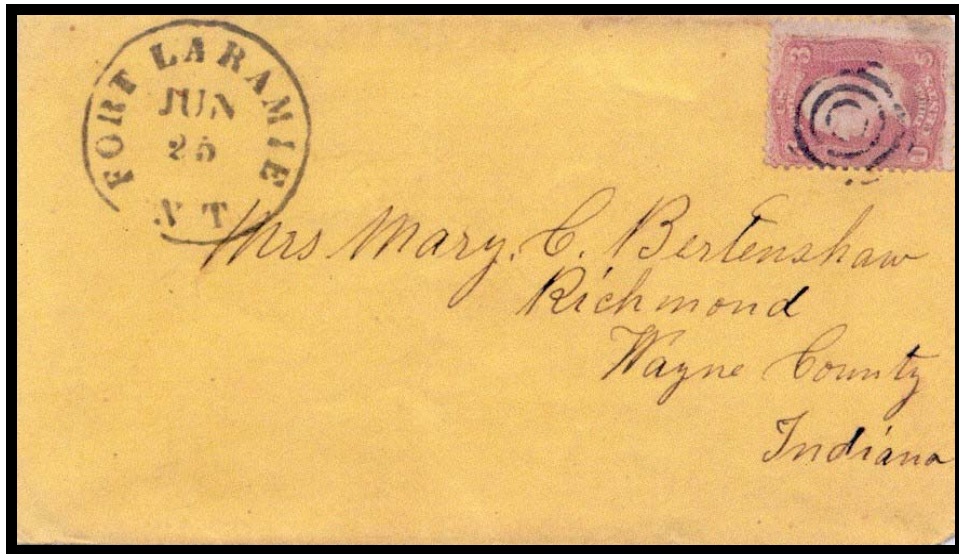 FORT LARAMIE
JUN
25
N T
3
CENTS
U
Mrs Mary. C. Bertenshaw
Richmond
Wayne County
Indiana